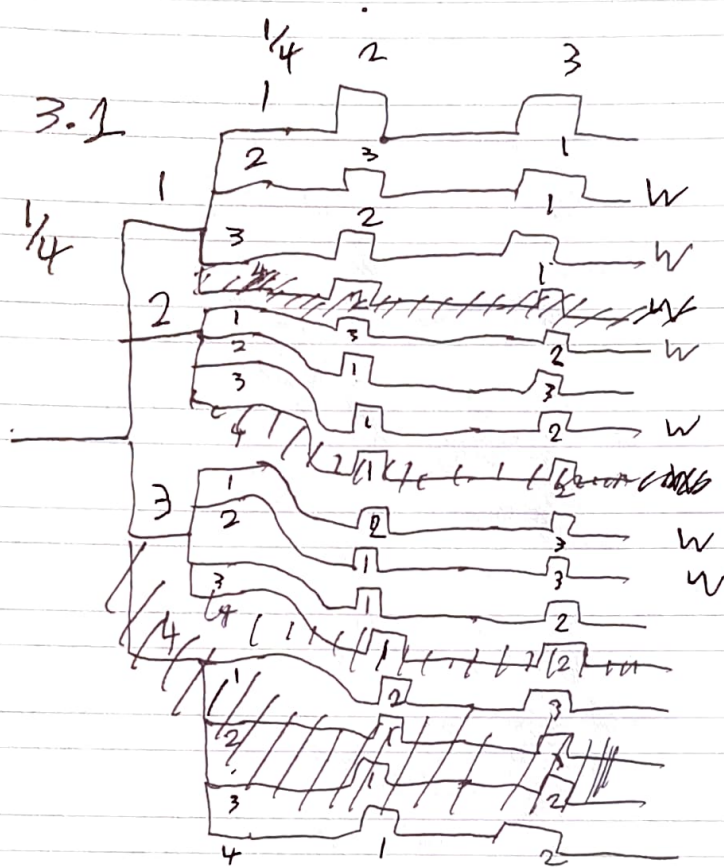 1/4 2 3
3.1 1
2 3 1 W
1
1/4 3 2 1 W
4 2 1 W
2 1 3 2 W
2 1 3
3 1 2 W
4 1 2
1 2 3 W
3 2 1 3 W
3 1 2
4 1 2
4 1 2 3
2 1
3 1 2
4 1 2